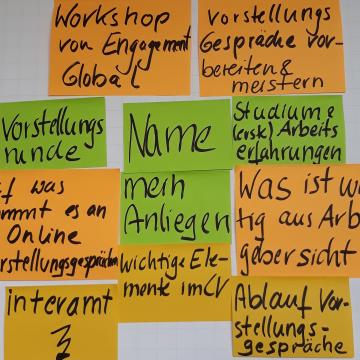 Workshop
von Engagement
Global
Vorstellungs
Gespräche vor-
bereiten &
meistern
Vorstellungs
runde
Name
Studium &
(erste) Arbeits
erfahrungen
was
mmt es an
Online
rstellungsgespräche
mein
Anliegen
Was ist w
tig aus Arb
gebersicht
interamt
wichtige Ele-
mente im CV
Ablauf Vor-
stellungs-
gespräche